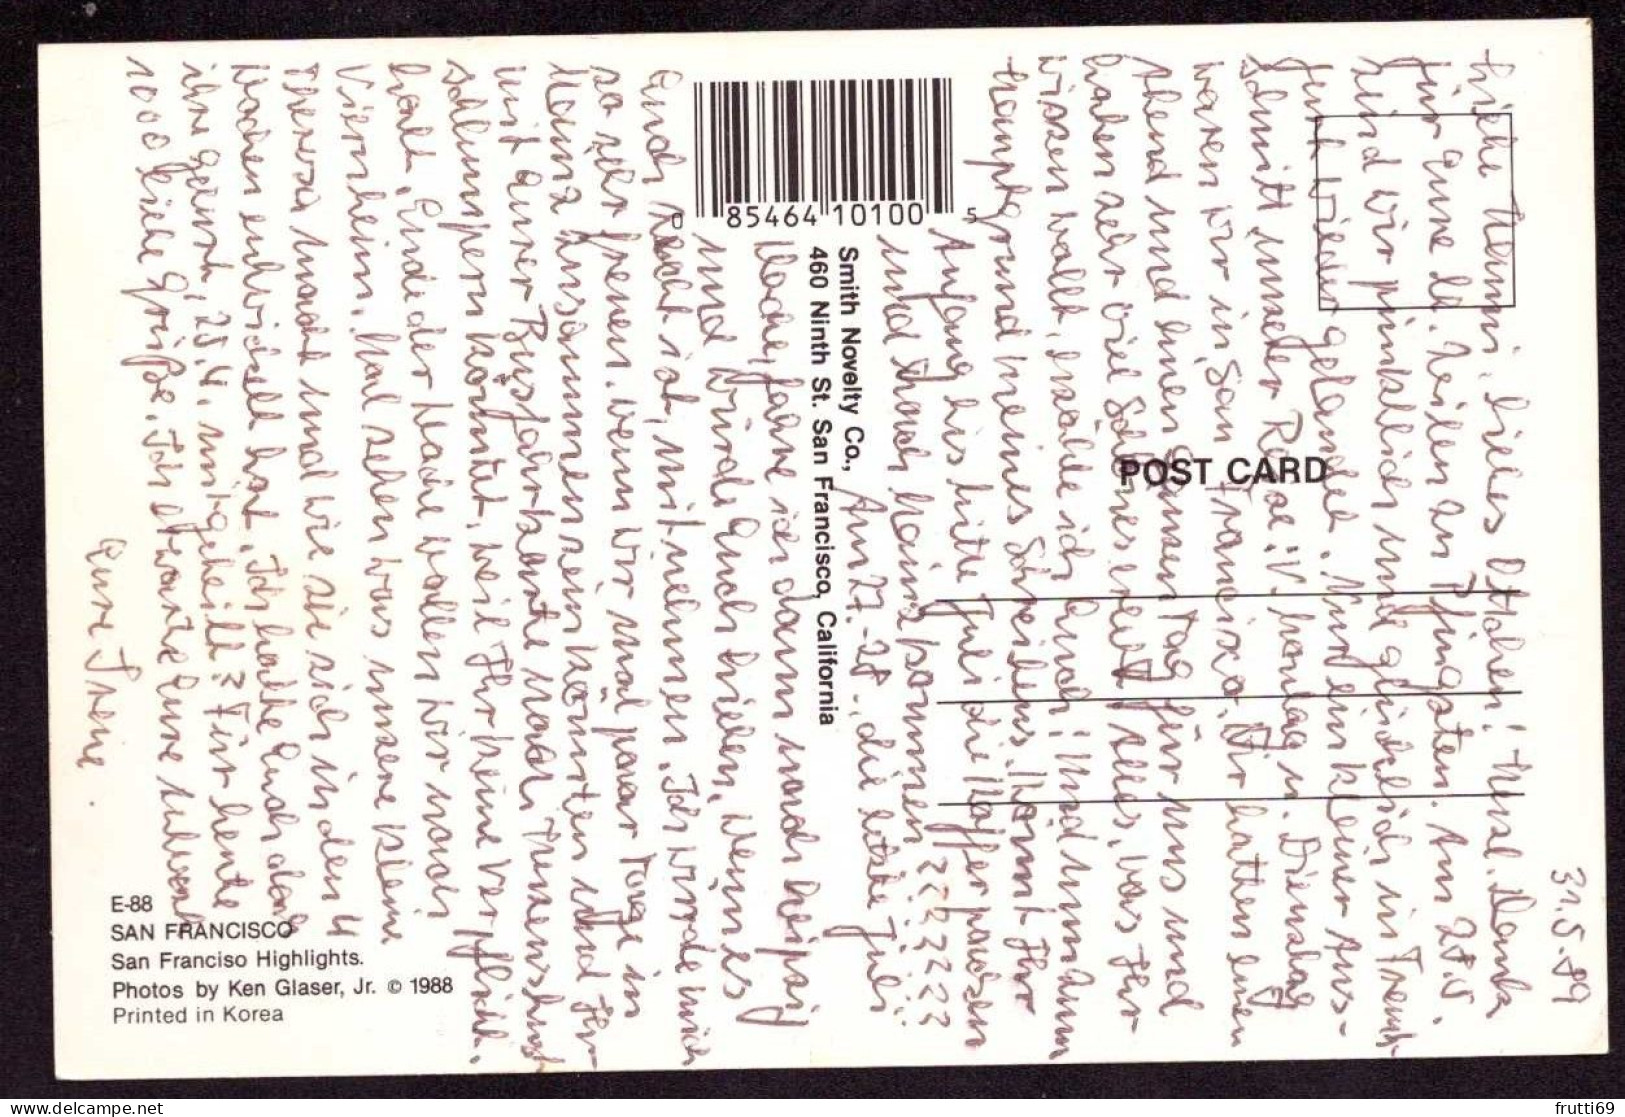 31.5.89
Liebe Mammi, liebes Ottchen! Herzl. Dank
für Eure lb. Zeilen zu Pfingsten. Am 28.5.
sind wir pünktlich und glücklich in Frank-
furt wieder gelandet. Nur ein kleiner Aus-
schnitt unserer Reise: V. Montag u. Dienstag
waren wir in San Francisco. Wir hatten einen
Abend und einen ganzen Tag für uns und
haben sehr viel Schönes erlebt. Alles, was Ihr
wissen wollt, erzähle ich Euch! Und nun zum
Hauptgrund meines Schreibens. Könnt Ihr
Anfang bis Mitte Juli die Koffer packen
und nach Mainz kommen ?? ? ? ? ? ?
Am 27.-28., die letzte Juli
Woche, fahre ich dann nach Leipzig
und würde Euch bieten, wenn es
Euch recht ist, mitnehmen. Ich würde mich
so sehr freuen, wenn wir mal paar Tage in
Mainz zusammen sein könnten und Ihr
mit Eurer Busfahrkarte nach
schlumpern könntet, weil Ihr keine Verpflicht.
habt. Ende der Woche wollen wir nach
Viernheim. Mal sehen was unsere kleine
Theresa macht und wie sie sich in den 4
Wochen entwickelt hat. Ich hatte Euch doch
ihre Geburt, 25.4. mitgeteilt? Für heute
1000 liebe Grüße. Ich erwarte Eure Antwort
Eure Irene.
POST CARD
0 85464 10100 5
Smith Novelty Co.,
460 Ninth St. San Francisco, California
E-88
SAN FRANCISCO
San Franciso Highlights.
Photos by Ken Glaser, Jr. © 1988
Printed in Korea
www.delcampe.net
frutti69